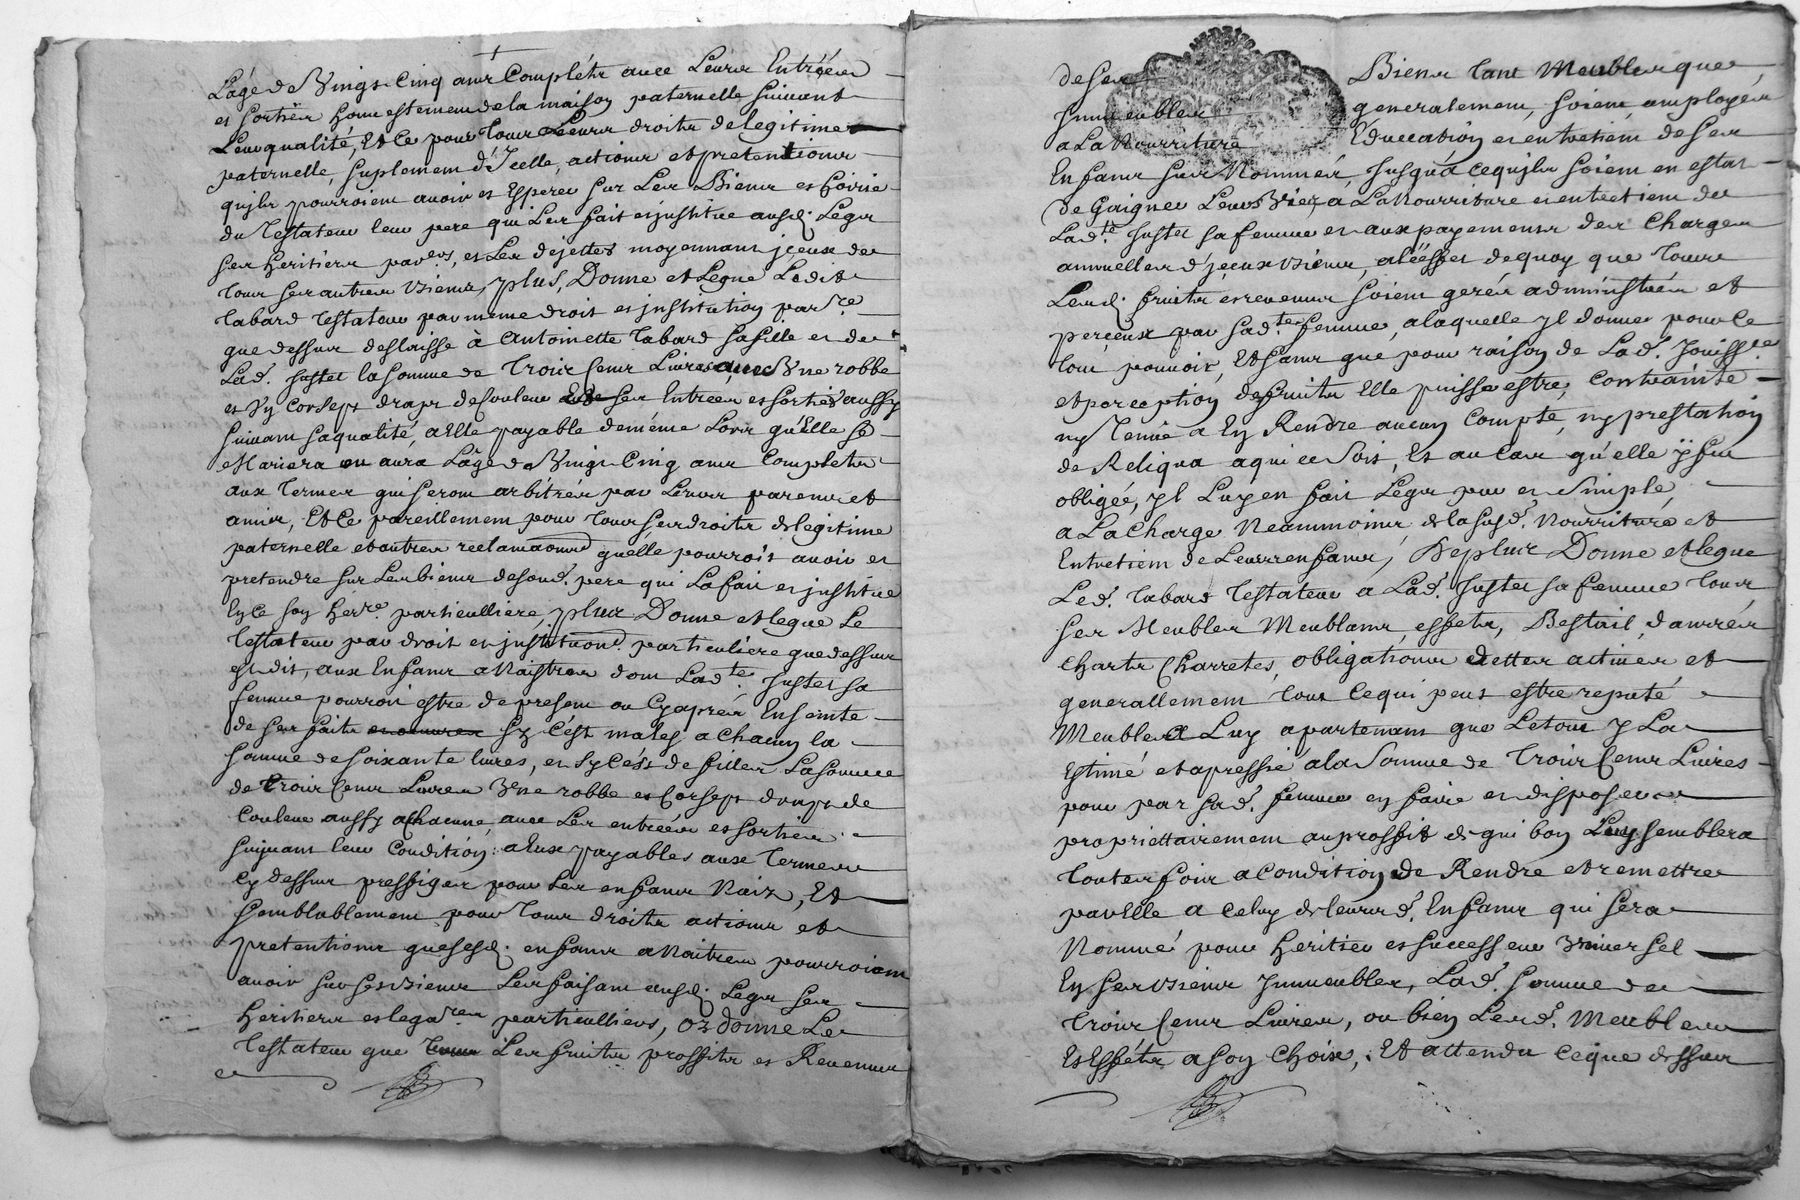 L'age de Vingt Cinq ans Complets avec Leurs Entrées
et sorties honnestement de la maison paternelle suivant
Leur qualité, Et Ce pour tous Leurs droits de legitime
paternelle, suplement d'Jcelle, actions et pretentions
qu'jls pourroient avoir et Esperer sur Les Biens et hoirie
du Testateur leur pere qui Les fait et justitue ausd. Legs
ses heritiers par.ers, et Les dejettes moyennant jceux de
tous ses autres biens, plus, Donne et Legue Ledit
tabard testateur par meme droit et justitution par.re
que dessus deslaisse à Antoinette tabard sa fille et de
Lad. Justet la somme de trois cens Livres avec Vne robbe
et Vn Corseps drap de Couleur ses Entrées et sorties aussy
suivant sa qualité, a Elle payable de même Lors qu'Elle se
Mariera ou aura L'age de Vingt Cinq ans Complets
aux termes qui seront arbitrés par Leurs parens et
amis, Et Ce pareillement pour tous ses droits de legitime
paternelle et autres reclamations qu'elle pourroit avoir et
pretendre sur Les biens de sond. pere qui La fait et justitue
En Ce son her.re particulliere, plus Donne et legue Le
Testateur par droit et justitution particuliere que dessus
est dit, aux Enfans a Naistre dont Lad.te Justet sa
femme pourroit estre de present ou Cy aprés Enseinte
de ses faits sy C'est males a Chacun la
somme de soixante livres, et sy C'est de filles La somme
de trois Cens Livres Vne robbe et Corseps draps de
Couleur aussy a Chacune, avec Les entrées et sorties
suivant leur Condition: a Eux payables aux termes
Cy dessus preffiges pour Les enfans Naiz, Et
semblablement pour tous droits actions et
pretentions que sesd. enfans a Naitre pourroient
avoir sur ses biens Les faisant ausd. Legs ses
heritiers et lega.res particulliers, Or donne Le
Testateur que Les fruits proffits et Revenus
de ses Biens tant Meubles que
Immeubles generalement, soient employés
a La Nourriture Education et entretient de ses
Enfans sus Nommés, Jusqu'a Ce qu'jls soient en estat
de Gaigner Leurs Vie, a La Nourriture et entretient de
Lad.te Justet sa femme et aux payements des Charges
annuelles d'jceux biens, a L'effet de quoy que tous
Lesd. fruits et revenus soient gerés administrés et
perçeus par sad.te femme, a laquelle jl donne pour Ce
tout pouvoir, Et sans que pour raison de Lad. Jouiss.ce
et perception de fruits Elle puisse estre, Contrainte
ny Tenüe a En Rendre aucun Compte, ny prestation
de Reliqua a qui Ce soit, Et au Cas qu'elle y fut
obligée, jl Luy en fait Legs pur et Simple,
a La Charge Neanmoins de la susd. Nourriture et
Entretient de Leurs enfans, De plus Donne et legue
Led. tabard Testateur a Lad. Justet sa femme tous
ses Meubles Meublants, effets, Bestail, danrrés
Charts Charretes, obligations dettes actives et
generallement tout Ce qui peut estre reputé
Meubles a Luy apartenant que Le tout jl La
Estimé et apressié a la Somme de trois Cens Livres
pour par sad. femme en faire et disposer
propriettairement au proffit de qui bon Luy semblera
toutes fois a Condition de Rendre et remettre
par Elle a Celuy de leursd. Enfans qui sera
Nommé pour heritier et successeur Vniversel
En ses biens Immeubles, Lad. somme de
trois Cens Livres, ou bien Lesd. Meubles
Et Effets, a son Choix,; Et attendu Ce que dessus